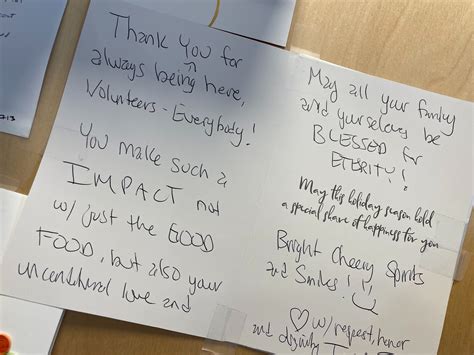 Thank You for
always being here,
Volunteers - Everybody!
You make such a
IMPACT not
w/ just the GOOD
FOOD, but also your
unconditional love and
May all your family
and yourselves be
BLESSED for
ETERITY!
May this holiday season hold
a special share of happiness for you
Bright Cheery Spirits
and Smiles!
w/ respect, honor
and dignity